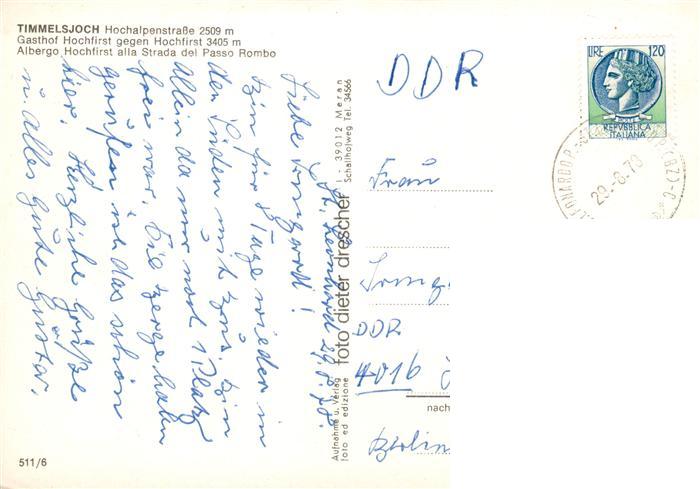 TIMMELSJOCH Hochalpenstraße 2509 m
Gasthof Hochfirst gegen Hochfirst 3405 m
Albergo Hochfirst alla Strada del Passo Rombo
St. Leonhard 29.8.78.
Liebe Irmgard!
bin für 8 Tage wieder in
den Süden mit
allein da nur noch 1 Platz
frei war. Die
ist das schön
hier. Herzliche Grüße
u. Alles Gute Gustav.
511/6
Aufnahme u. Verlag
foto ed edizione
foto dieter drescher
I - 39012 Meran
Schallhofweg Tel. 34566
DDR
Frau
Irmg
DDR
4016
nach
Berlin
LIRE 120
REPVBBLICA
ITALIANA
29.-8.78